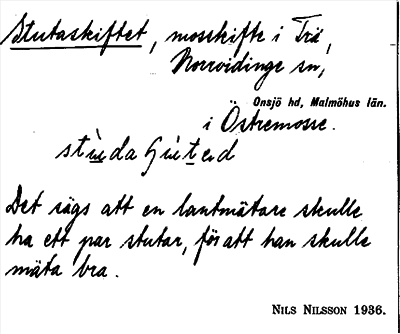 Stutaskiftet, mosskifte i Trä,
Norrvidinge sn,
Onsjö hd, Malmöhus län.
i Östremosse.
Det sägs att en lantmätare skulle
ha ett par stutar, för att han skulle
mäta bra.
NILS NILSSON 1936.